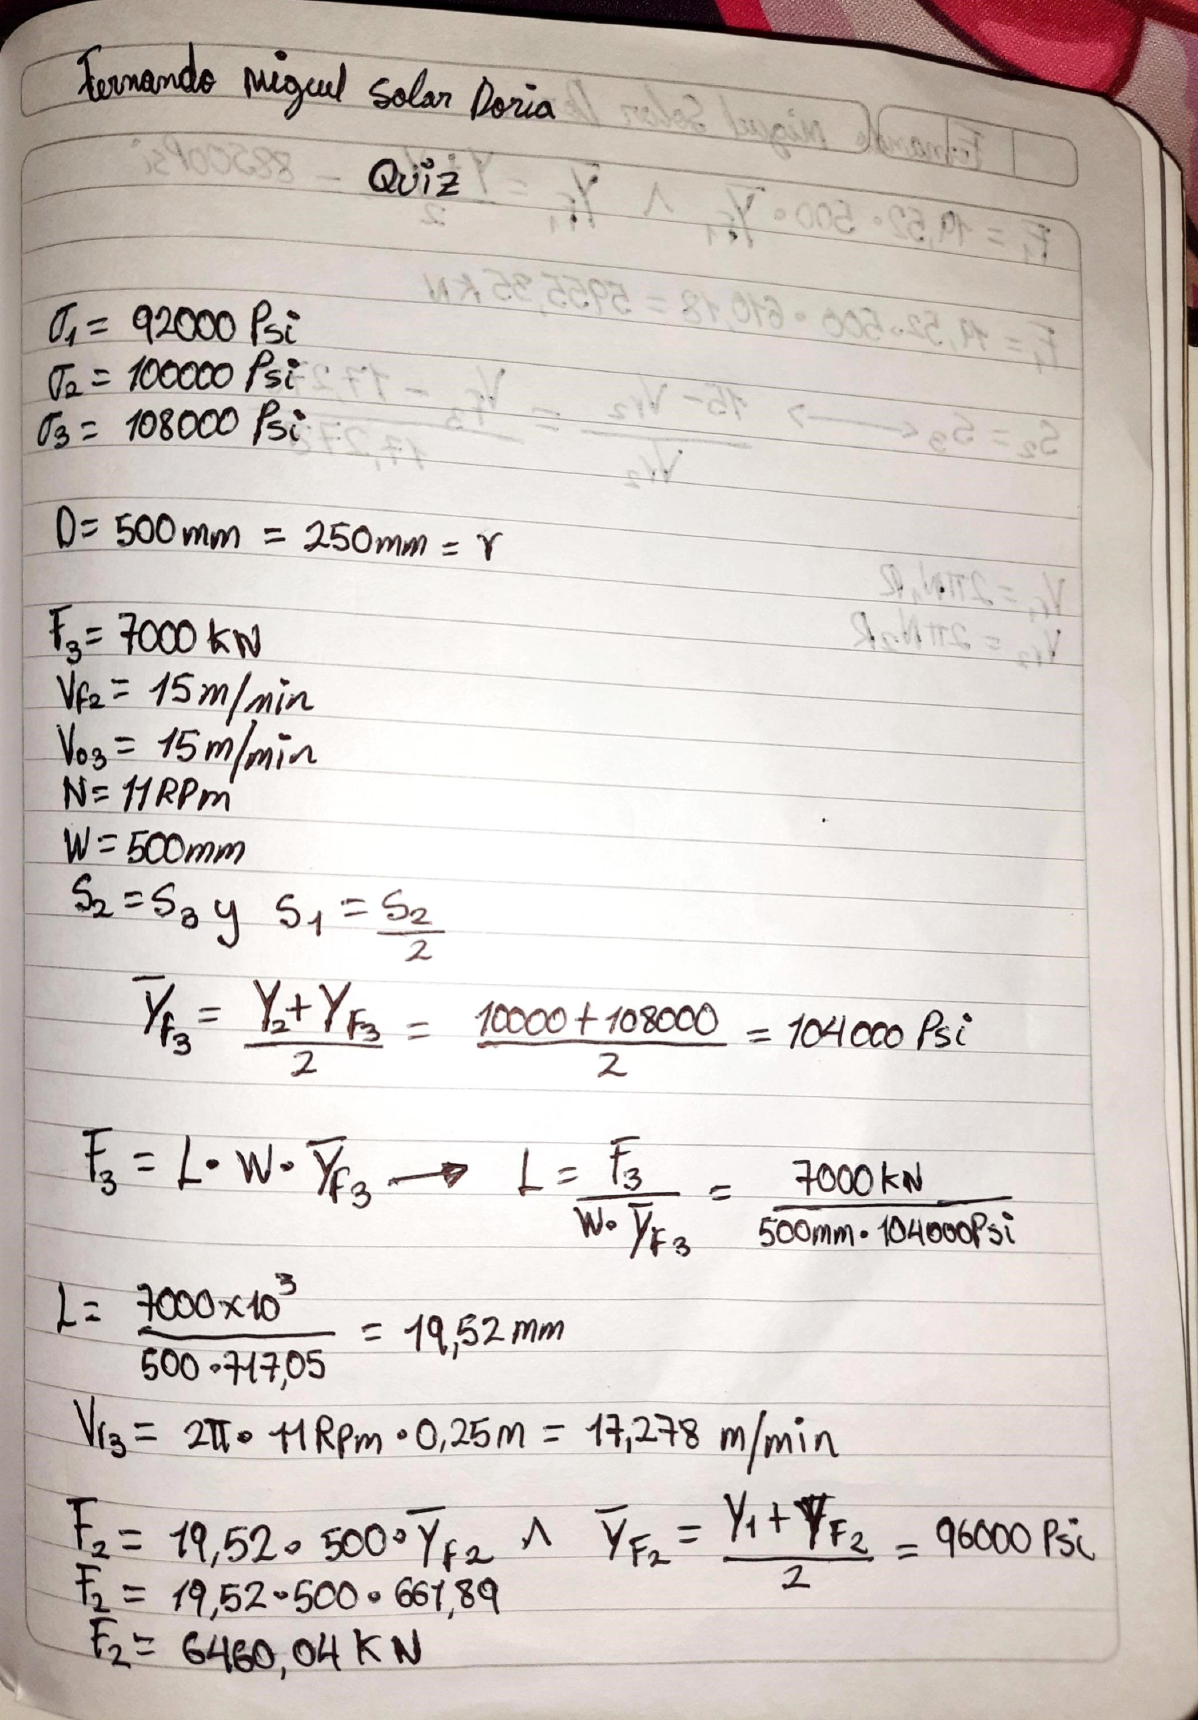 Fernando Miguel Solar Doria
Quiz
σ1 = 92000 Psi
σ2 = 100000 Psi
σ3 = 108000 Psi
D = 500mm = 250mm = r
F3 = 7000 KN
Vf2 = 15m/min
Vo3 = 15m/min
N = 11RPm
W = 500mm
S2 = S3 y S1 = S2/2
Ȳf3 = (Y2 + YF3)/2 = (10000 + 108000)/2 = 104000 Psi
F3 = L · W · Ȳf3 → L = F3/(W · ȲF3) = 7000KN/(500mm · 104000Psi)
L = 7000x10³/(500 · 717,05) = 19,52 mm
Vr3 = 2π · 11RPm · 0,25m = 17,278 m/min
F2 = 19,52 · 500 · Ȳf2 ∧ ȲF2 = (Y1 + YF2)/2 = 96000 Psi
F2 = 19,52 · 500 · 661,89
F2 = 6460,04 KN